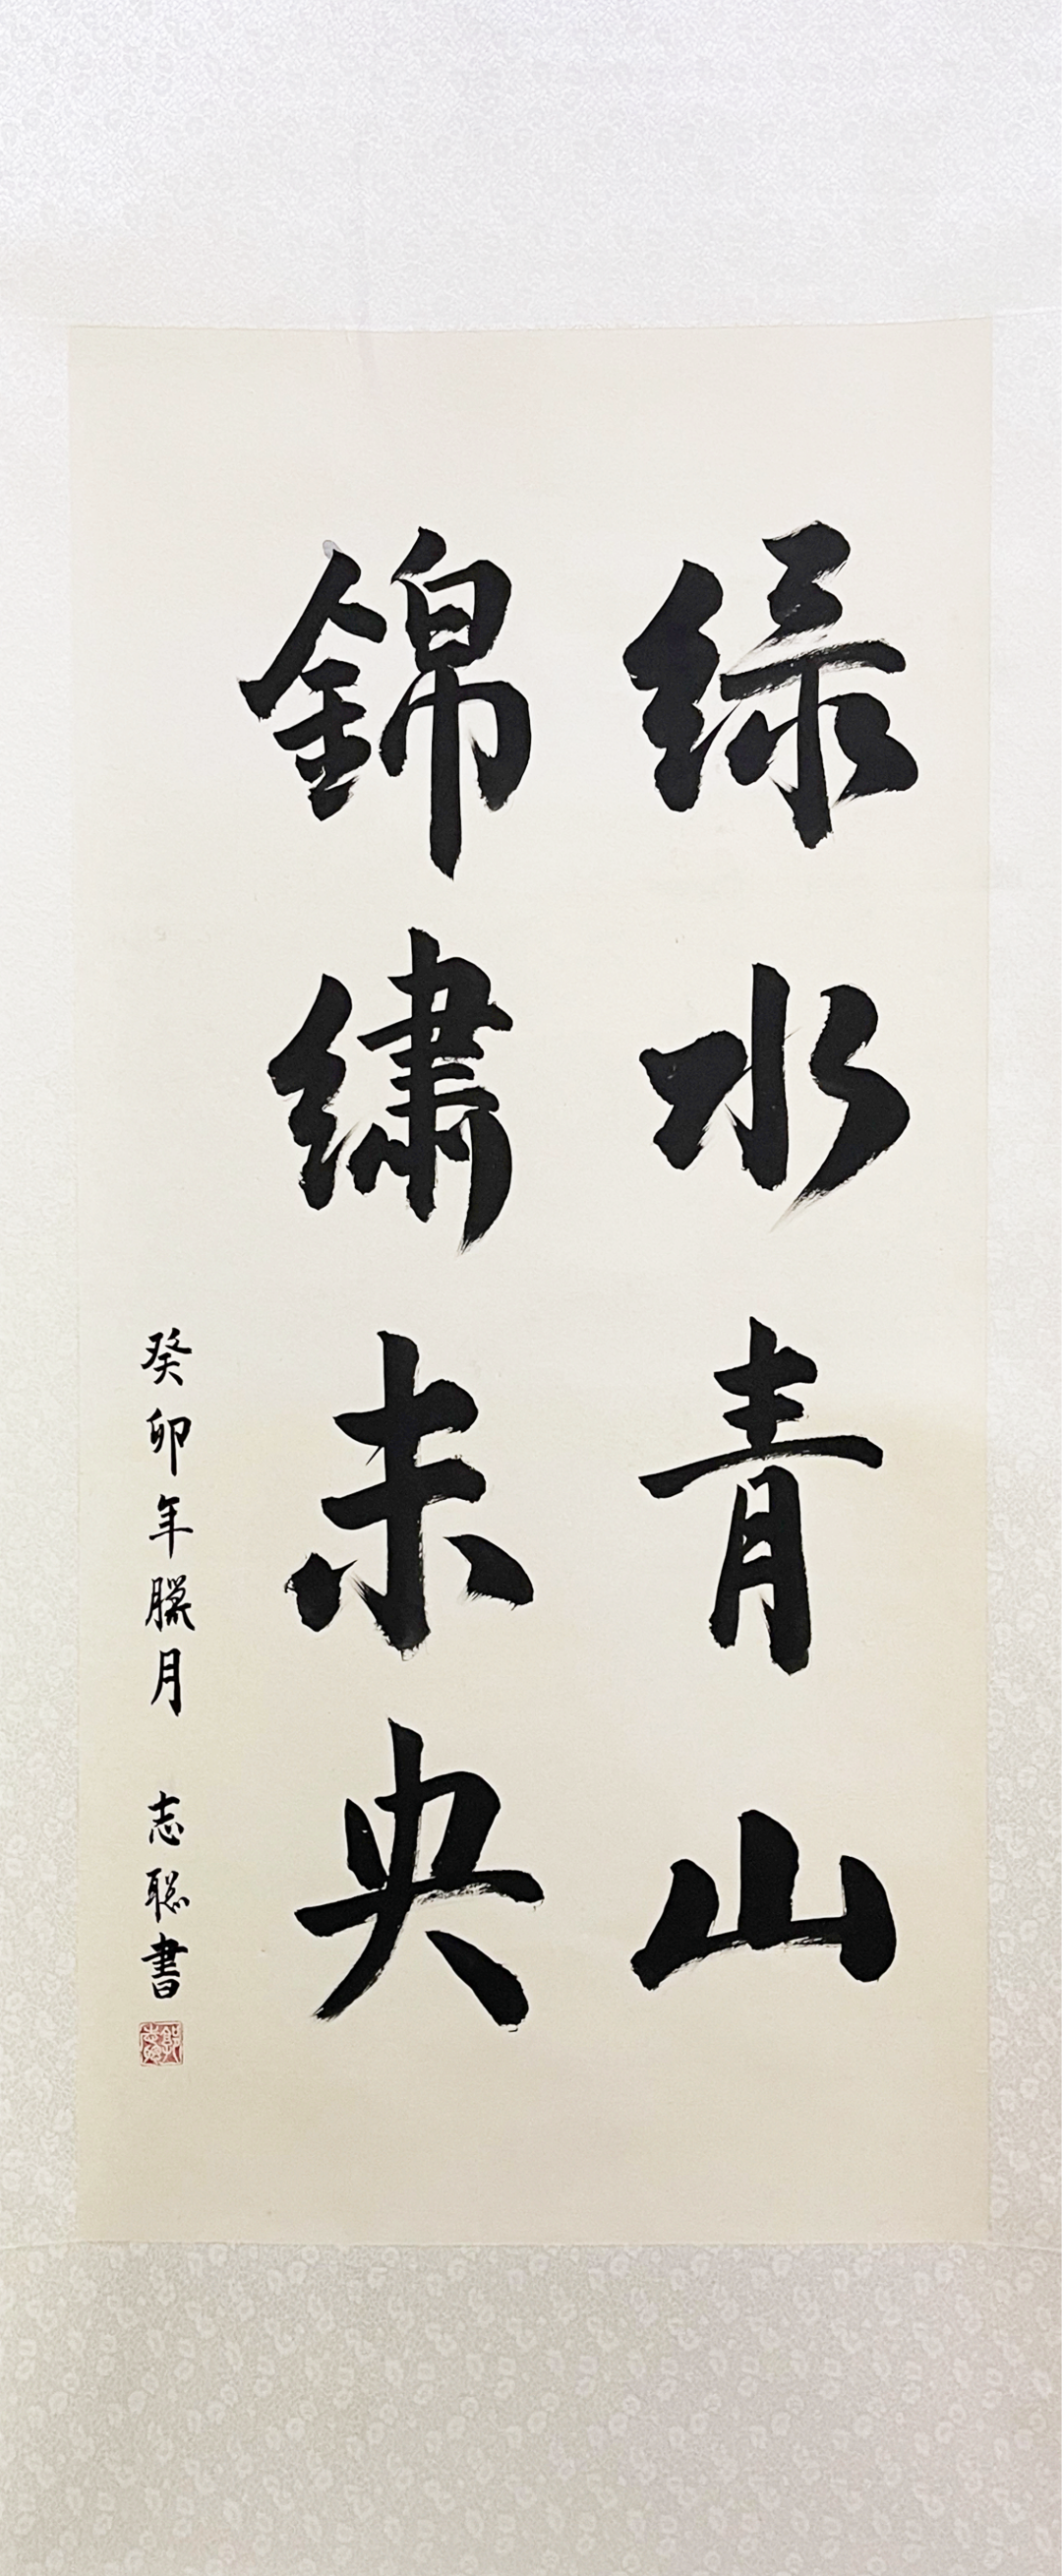 綠水青山
錦繡未央
癸卯年臘月 志聰書